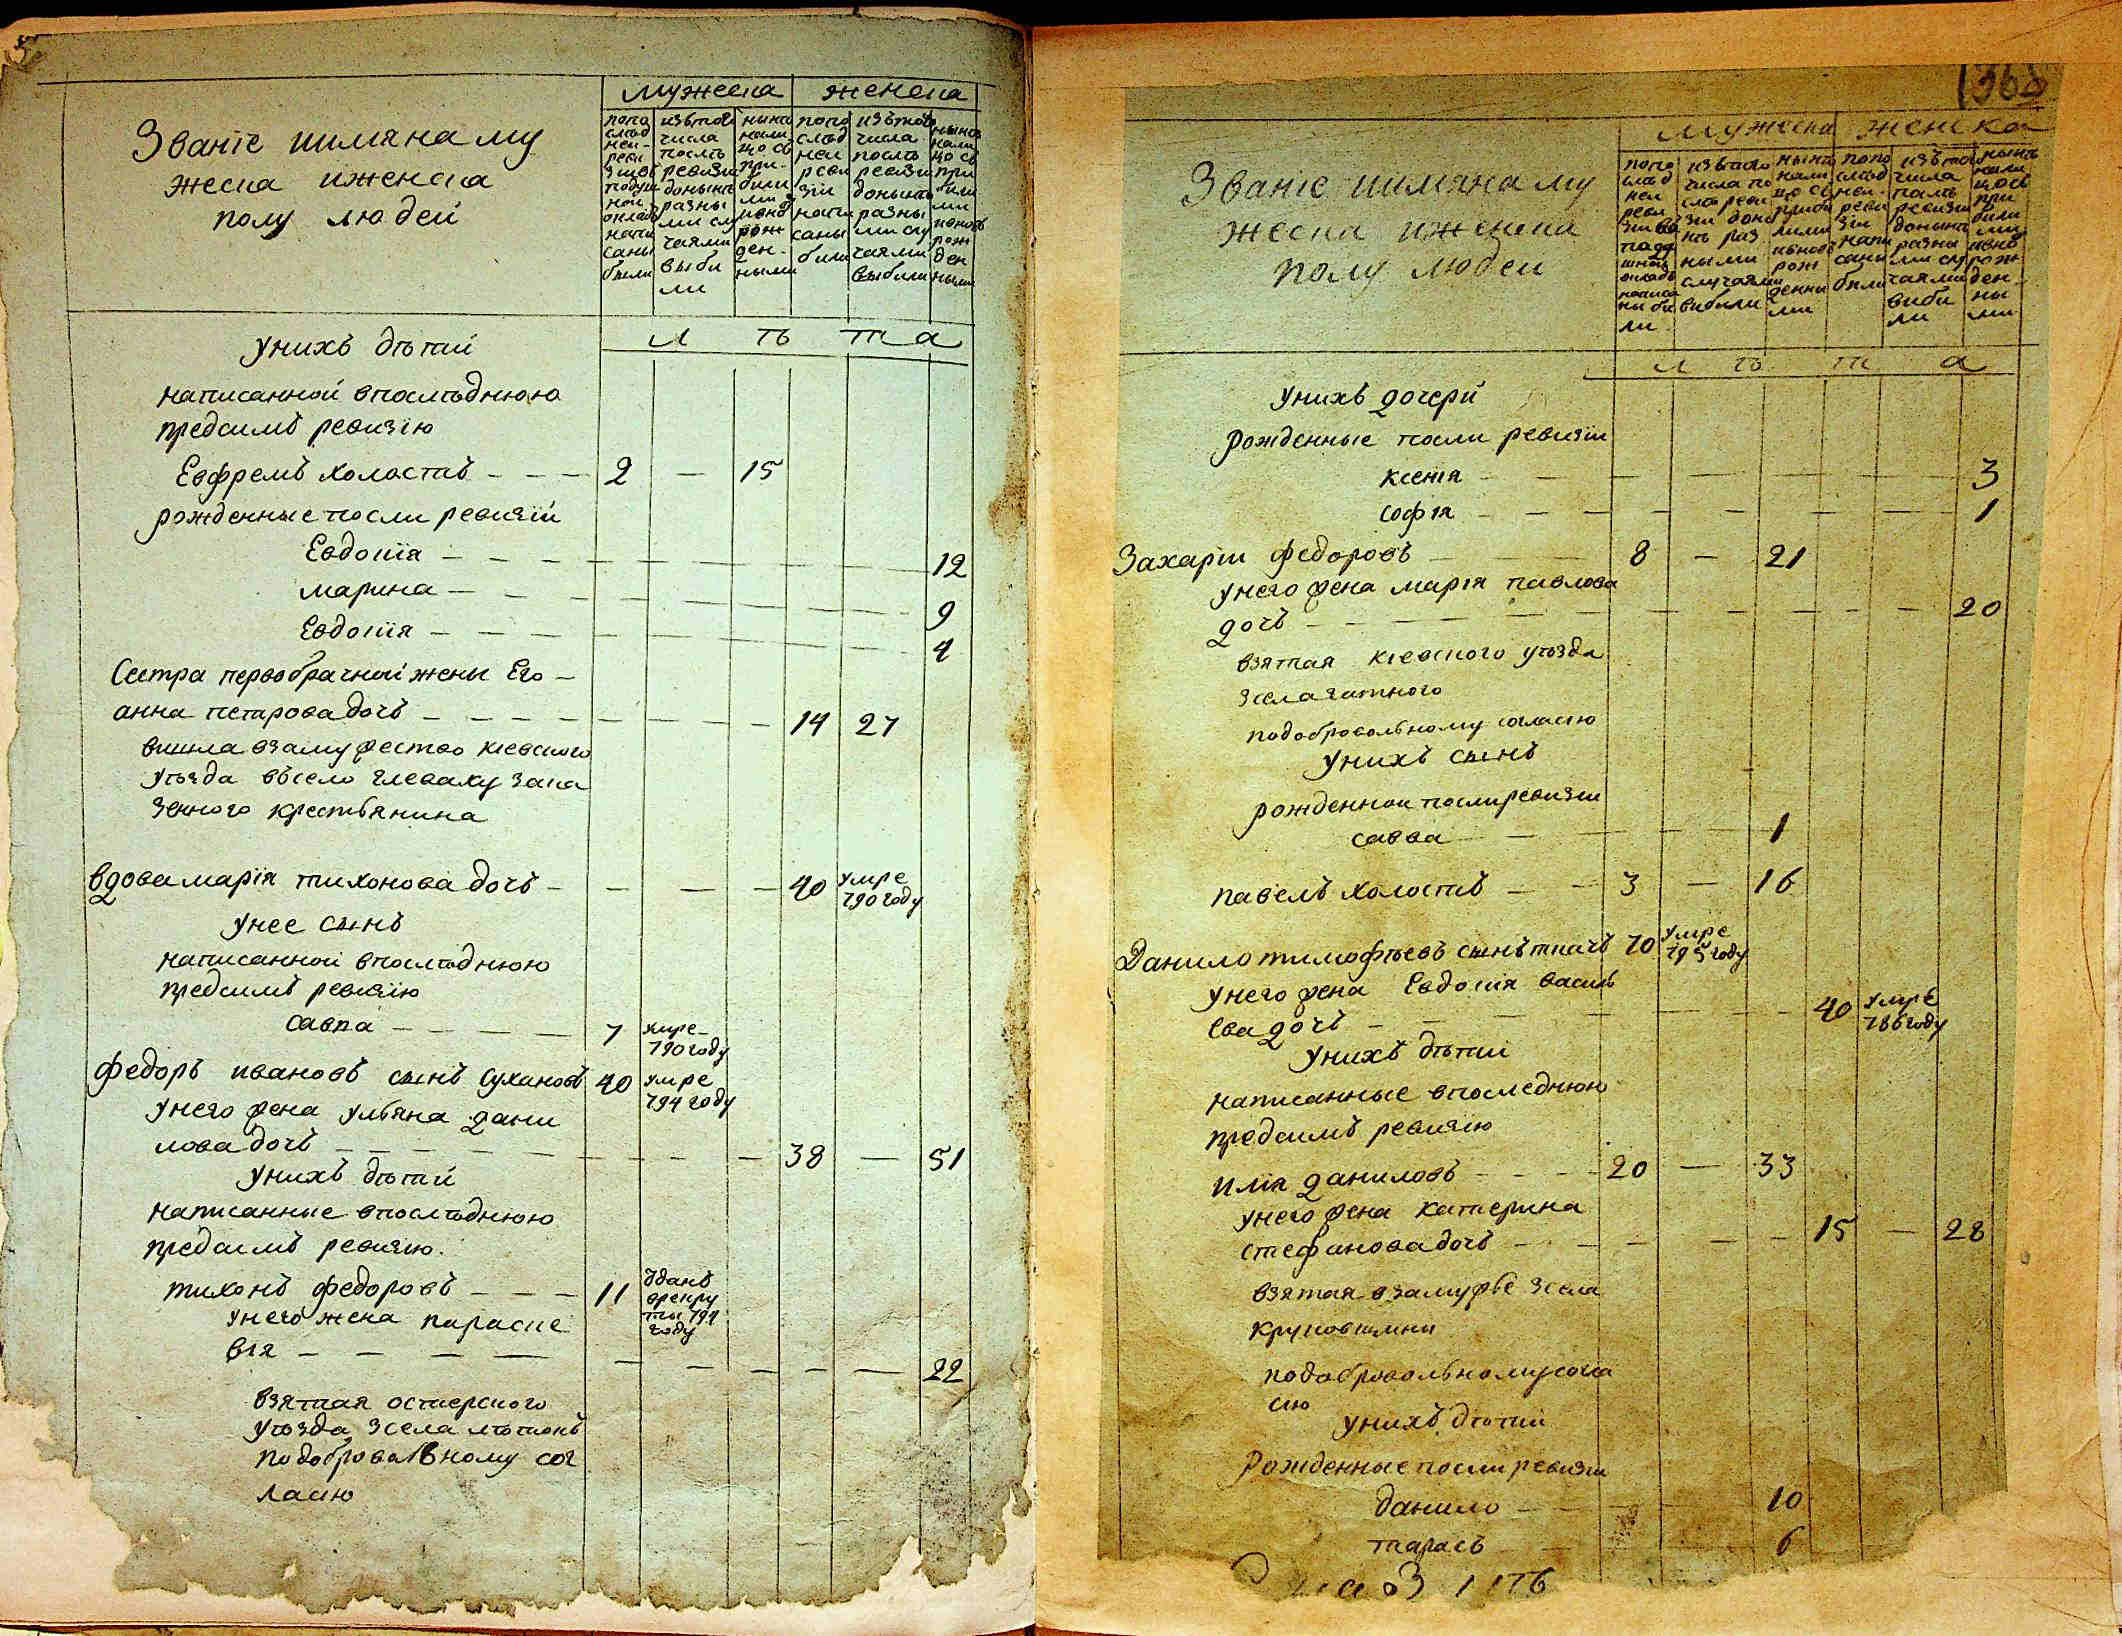 Званіе иимяна му
жеска иженска
полу людей
мужеска женска
попо
слѣд
ней
реви
зіи въ
подуш
ной
окладъ
напи
саны
были
изътого
числа
послѣ
ревизіи
донынѣ
разны
ми слу
чаями
выби
ли
нынѣ
нали
цо съ
при-
были
ми и
вновь
рож
ден-
ными
попо
слѣд
ней
реви
зіи
напи
саны
были
изътого
числа
послѣ
ревизіи
донынѣ
разны
ми слу
чаями
выбыли
нынѣ
нали
цо съ
при
были
ми
ивновь
рож
ден
ными
л ѣ т а
унихъ дѣтей
написанной впослѣднюю
предсимъ ревизію
Евфремъ холостъ - - - 2 — 15
рожденные посли ревизіи
Евдокія — 12
марина — 9
Евдокія — 4
Сестра первобрачной жены Его —
анна петрова дочь — 14 27
вишла взамужество кіевского
уѣзда въсело глеваху зака
зенного крестьянина
вдова марія тихонова дочь — 40 умре
790 году
унее сынъ
написанной впослѣднюю
предсимъ ревизію
савка — 7 умре
790 году
федоръ ивановъ сынъ Сухановъ 40 умре
794 году
унего жена ульяна дани
лова дочь — 38 — 51
унихъ дѣтей
написанные впослѣднюю
предсимъ ревизію.
тихонъ федоровъ — 11 Зданъ
врекру
ты 791
году
унего жена параске
вія — 22
взятая остерского
уѣзда зсела лѣтокъ
подобровольному сог
ласію
136
мужеска женска
Званіе иимяна му
жеска иженска
полу людей
попо
слѣд
ней
реви
зіи въ
поду
шной
окладъ
написа
ны бы
ли
изътого
числа по
слѣ реви
зіи доны
нѣ раз
ными
случаями
вибыли
нынѣ
нали
цо съ
прибы
лими
ивновь
рож
денны
ми
попо
слѣд
ней
реви
зіи
напи
сани
были
изъ того
числа
послѣ
ревизіи
донынѣ
разны
ми слу
чаями
виби
ли
нынѣ
нали
цо съ
при
были
ми
ивнов
рож
ден
ны
ми
л ѣ т а
унихъ дочери
рожденные посли ревизіи
ксенія — 3
софія — 1
Захарій федоровъ — 8 — 21
унего жена марія павлова
дочь — 20
взятая кіевского уѣзда
зсела гатного
подобровольному согласію
унихъ сынъ
рожденной послиревизіи
савва — 1
павелъ холостъ — 3 — 16
Данило тимофѣевъ сынъ ткачъ 70 умре
795 году
унего жена Евдокія василь
ева дочь — 40 умре
786 году
унихъ дѣтей
написанные впоследнюю
предсимъ ревизію
илія даниловъ — 20 — 33
унего жена катерина
стефанова дочь — 15 — 28
взятая взамужье зсела
круковщини
подобровольному согла
сію
унихъ дѣтей
Рожденные посли ревизіи
данило — 10
тарасъ — 6